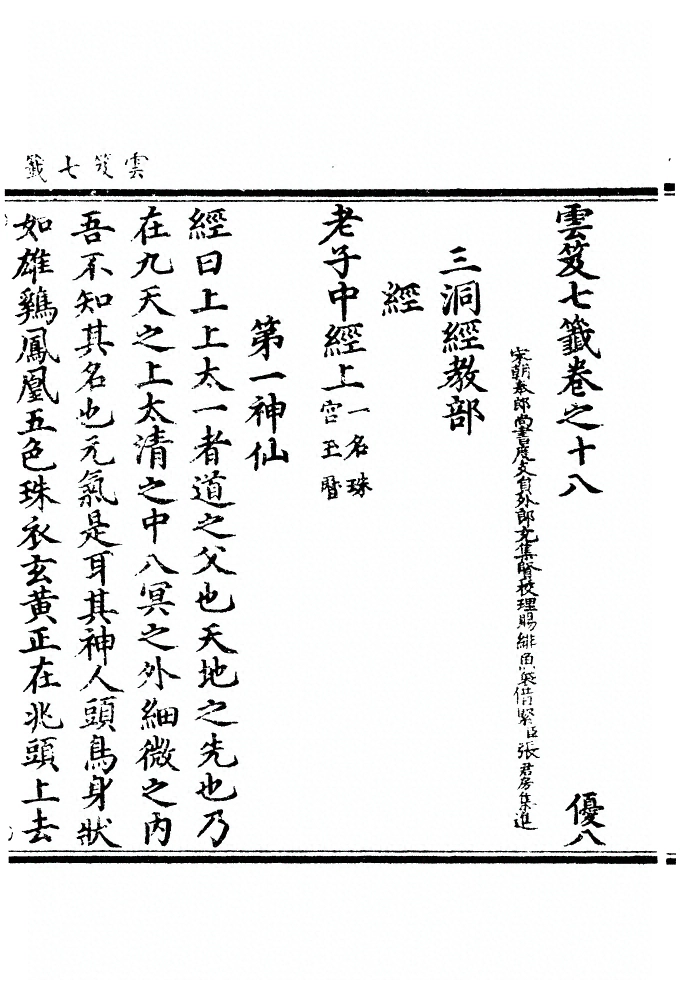 雲笈七籤
雲笈七籤卷之十八 優八
宋朝奉郎尚書度支員外郎充集賢校理賜緋魚袋借緊臣張君房集進
三洞經教部
經
老子中經上一名珠宮玉曆
第一神仙
經曰上上太一者道之父也天地之先也乃
在九天之上太清之中八冥之外細微之內
吾不知其名也元氣是耳其神人頭鳥身狀
如雄鷄鳳凰五色珠衣玄黃正在兆頭上去